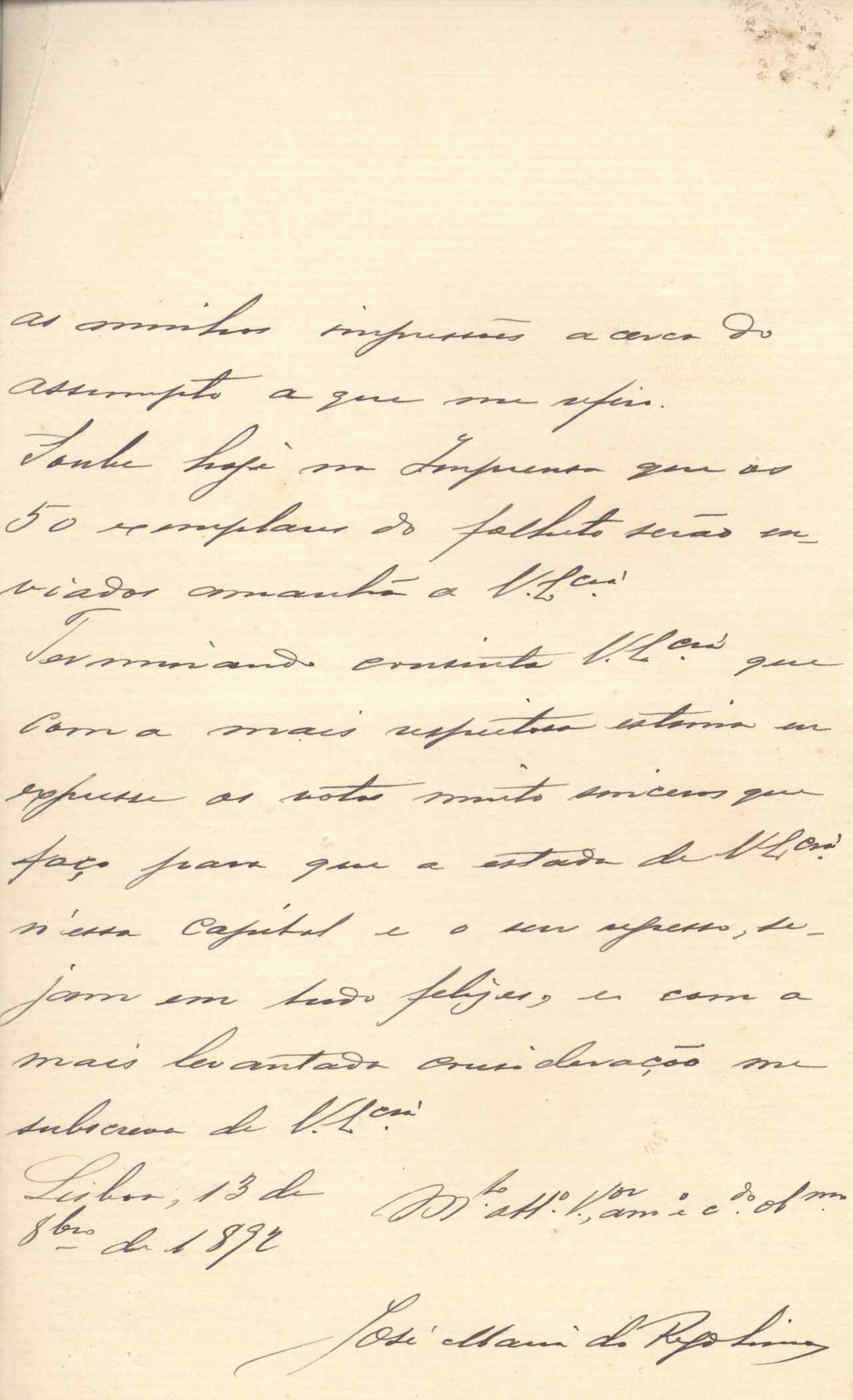 as minhas impressões acerca do
assumpto a que me refiro.
Soube hoje na Imprensa que os
50 exemplares do folheto serão en-
viados amanhã a V. Ex.cia
Terminando consinta V. Ex.cia que
com a mais respeitosa estima eu
expresse os votos muito sinceros que
faço para que a estada de V. Ex.cia
n'essa capital e o seu regresso, se-
jam em tudo felizes, e com a
mais levantada consideração me
subscrevo de V. Ex.cia
Lisboa, 13 de
8bro de 1892
M.to att.o V.or, am.o e c.do ob.mo
José Maria do Rego Lima